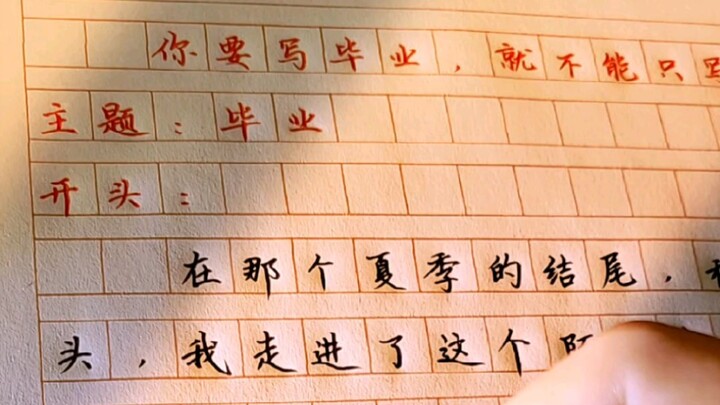 你要写毕业，就不能只
主题：毕业
开头：
在那个夏季的结尾，
头，我走进了这个